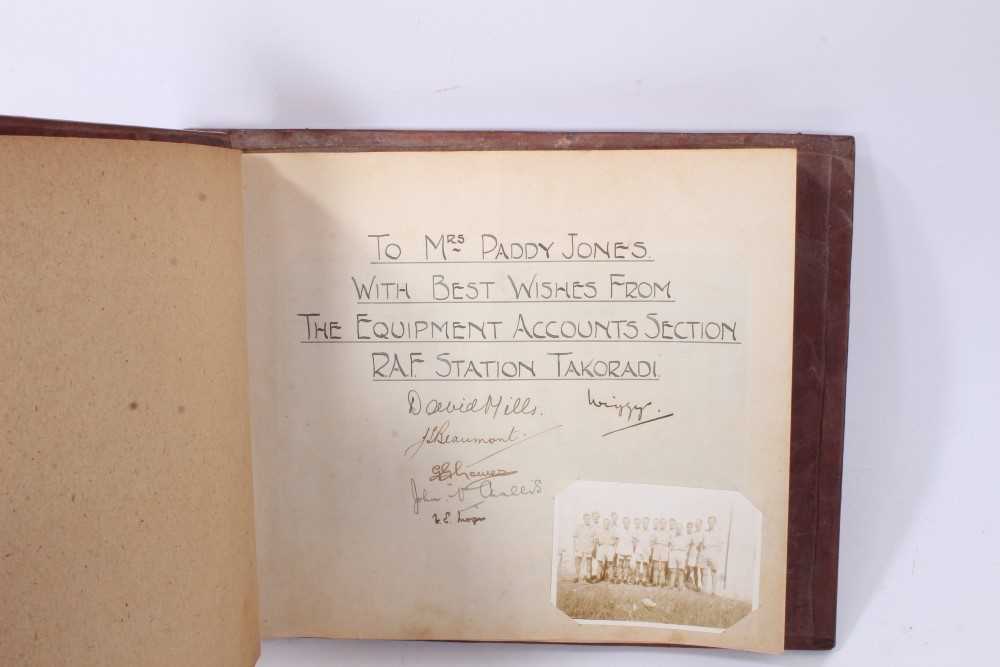 TO MRS PADDY JONES.
WITH BEST WISHES FROM
THE EQUIPMENT ACCOUNTS SECTION
RAF STATION TAKORADI.
David Mills. Wiggy.
Beaumont.
John Challis